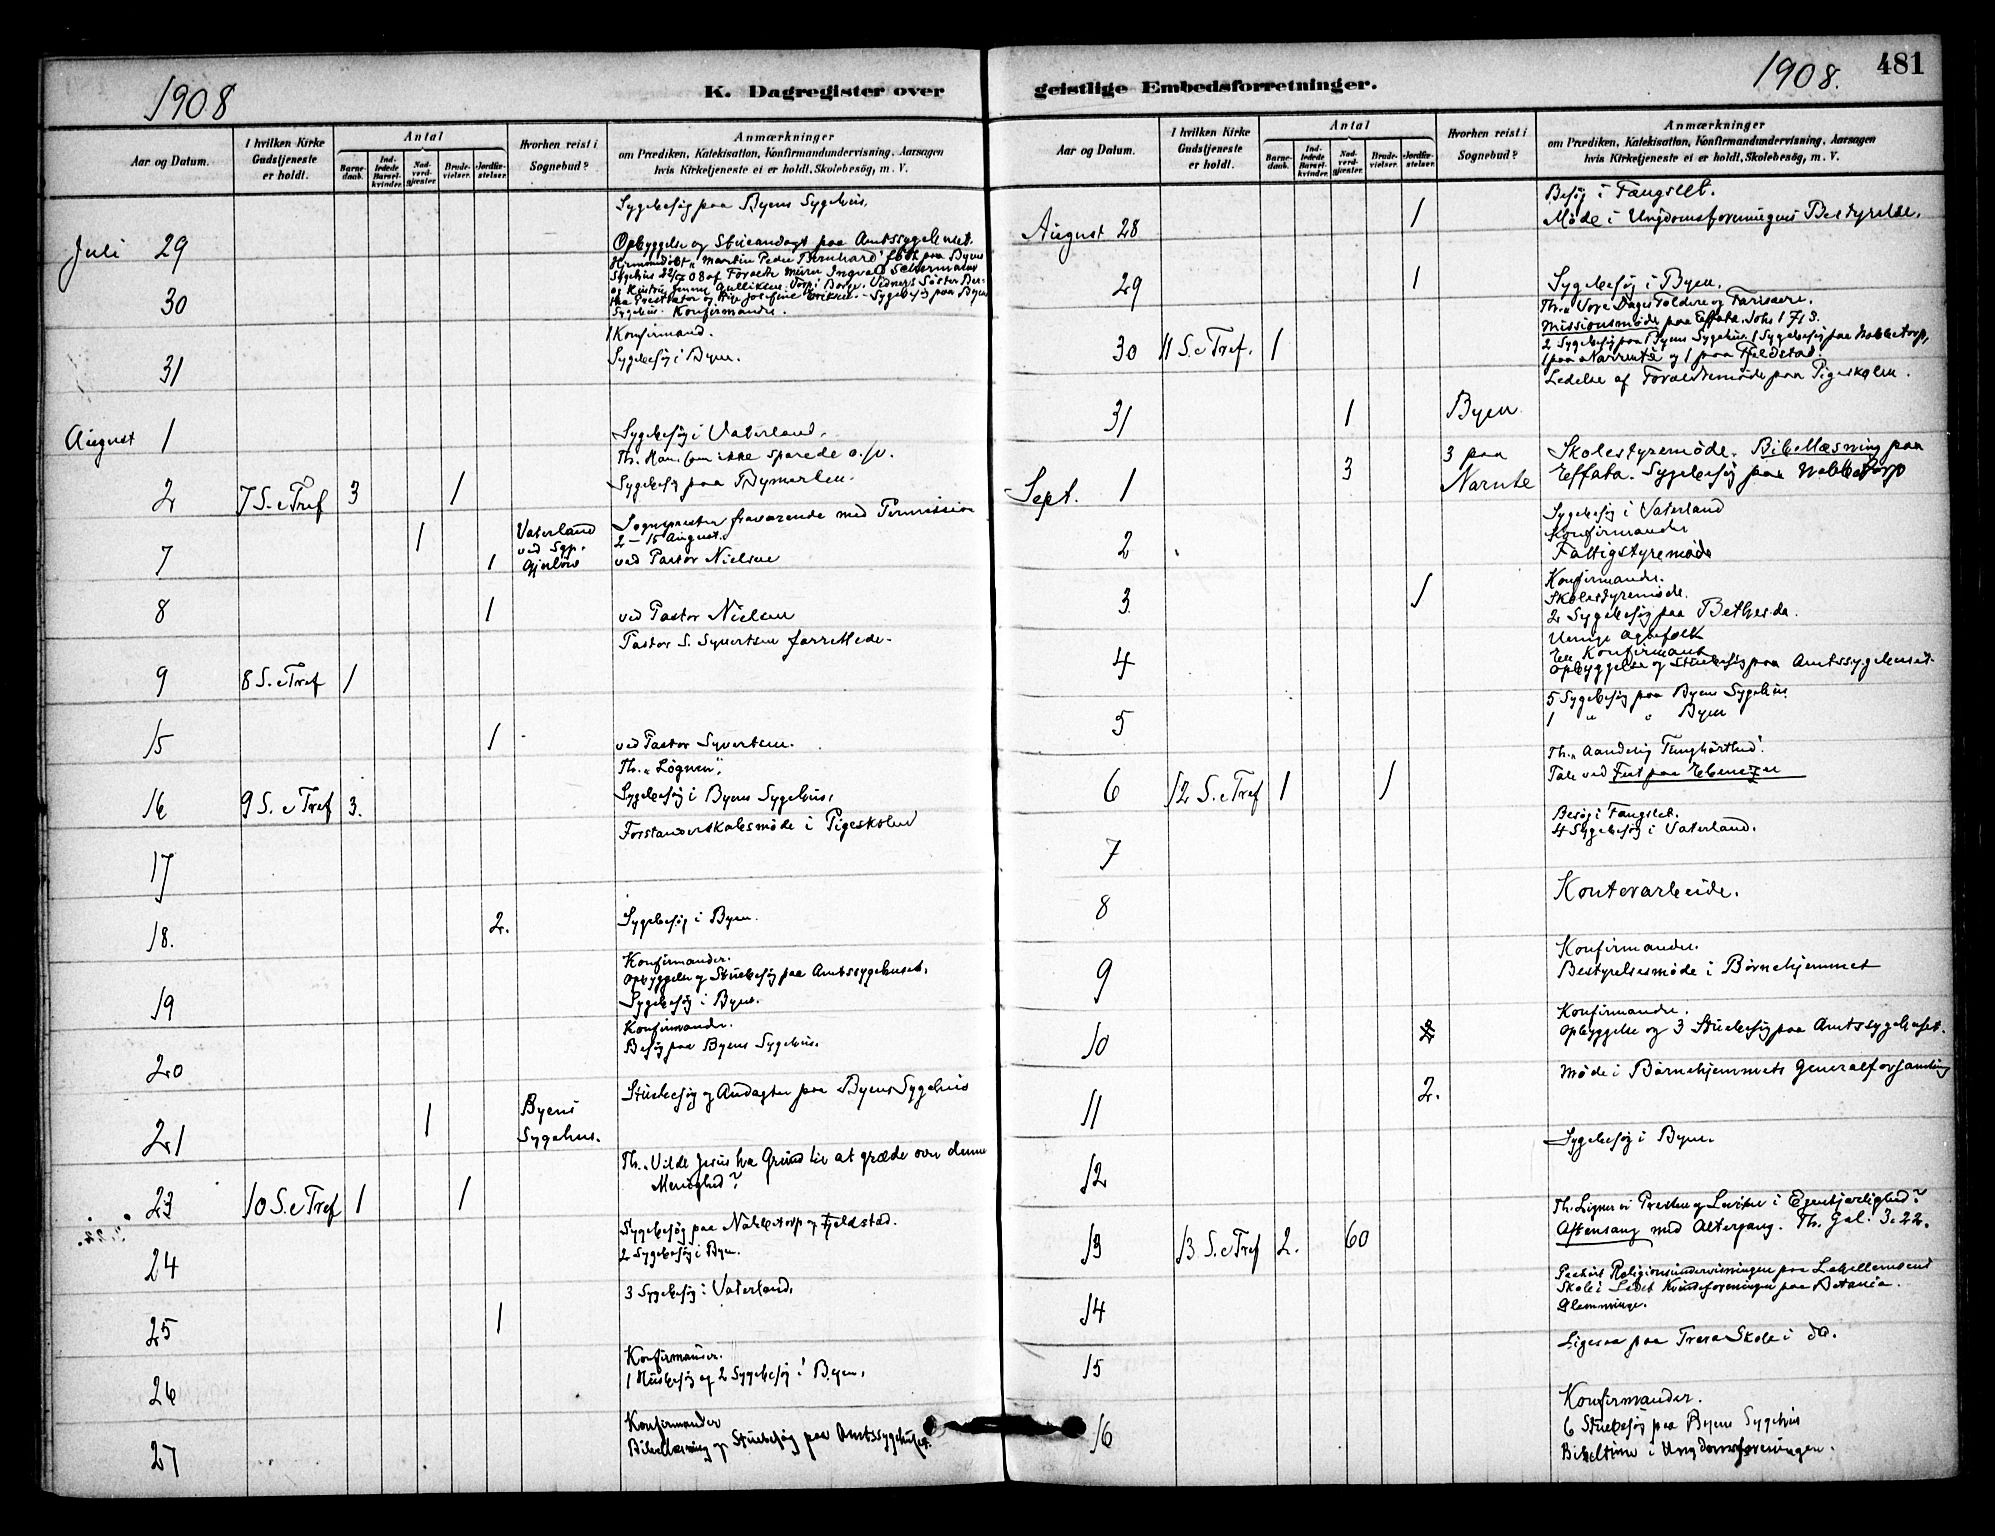 1908
K. Dagregister over
Aar og Datum.
I hvilken Kirke Gudstjeneste er holdt.
Antal
Barnedaab.
Indledede Barselkvinder.
Nadverdgjæster
Brudevielser.
Jordfæstelser.
Hvorhen reist i Sognebud?
Anmærkninger
om Prædiken, Katekisation, Konfirmandundervisning, Aarsagen
hvis Kirketjeneste ei er holdt, Skolebesøg, m. V.
Sygebesøg paa Byens Sygehus.
Juli 29
Opbyggelse og Stueandagt paa Amtssygehuset.
30
Hjemmedøbt "Martin Peder Bernhard" født paa Byens
Sygehus 22/5 08 af Forældre Murer Ingvald
og Hustru Jenny Gulliksen. Torp i Borge.
og Josefine Eriksen. - Sygebesøg paa Byens
Sygehus. Konfirmander.
1 Konfirmand.
31
Sygebesøg i Byen.
August 1
Sygebesøg i Vaterland.
Th. Han som ikke sparede o.s.v.
2 7 S. e Tref 3 1
Sygebesøg paa Bymarken.
7 1 Vaterland ved Sgp. 1
Sognepresten fraværende med Permission
2 - 15 August.
ved Pastor Nielsen
8 1 ved Pastor Nielsen
Pastor S. Syvertsen forrettede.
9 8 S. e Tref 1
15 1 ved Pastor Syvertsen.
Th. "Løgnen".
16 9 S. e Tref 3.
Sygebesøg i Byens Sygehus.
Forstanderskabsmøde i Pigeskolen
17
18. 2. Sygebesøg i Byen.
Konfirmander.
Opbyggelse og Stuebesøg paa Amtssygehuset.
19
Sygebesøg i Byen.
Konfirmander.
Besøg paa Byens Sygehus.
20
Stuebesøg og Andagter paa Byens Sygehus
21 1 Byens Sygehus.
Th. "Vilde Jesus ha Grund til at græde over denne
Menighed?
23 10 S. e Tref 1 1
Sygebesøg paa Nabbetorp og Fjeldstad.
24
2 Sygebesøg i Byen.
3 Sygebesøg i Vaterland.
25 1
Konfirmander.
26
1 Husbesøg og 2 Sygebesøg i Byen.
Konfirmander
27
Bibellæsning og Stuebesøg paa Amtssygehuset.
geistlige Embedsforretninger.
1908.
481
Aar og Datum.
I hvilken Kirke Gudstjeneste er holdt.
Antal
Barnedaab.
Indledede Barselkvinder.
Nadverdgjæster
Brudevielser.
Jordfæstelser.
Hvorhen reist i Sognebud?
Anmærkninger
om Prædiken, Katekisation, Konfirmandundervisning, Aarsagen
hvis Kirketjeneste ei er holdt, Skolebesøg, m. V.
Besøg i Fængslet.
August 28 1
Møde i Ungdomsforeningens Bestyrelse.
29 1 Sygebesøg i Byen.
Th. "Vore Dages Toldere og Farisæere.
Missionsmøde paa Effata. Joh 1
30 11 S. e Tref. 1
2 Sygebesøg paa Byens Sygehus. 1 Sygebesøg paa Nabbetorp,
1 paa Narnte og 1 paa Fjeldstad.
Ledelse af Forældremøde paa Pigeskolen.
31 1 Byen.
Sept. 1 3 3 paa Narnte
Skolestyremøde. Bibellæsning paa
Effata. Sygebesøg paa Nabbetorp
Sygebesøg i Vaterland
Konfirmander
2
Fattigstyremøde
Konfirmander.
3 1
Skolestyremøde.
2 Sygebesøg paa Bethesda.
Uenige Ægtefolk
En Konfirmant
4
Opbyggelse og Stuebesøg paa Amtssygehuset.
5 Sygebesøg paa Byens Sygehus
5
1 " " Byen
Th. "Aandelig Tunghørthed".
6 12 S. e Tref 1 1
Tale ved Fest paa Ebenezer
Besøg i Fængslet.
4 Sygebesøg i Vaterland.
7
8
Kontorarbeide.
Konfirmander.
9
Bestyrelsesmøde i Børnehjemmet
Konfirmander.
10 2
Opbyggelse og 3 Stuebesøg paa Amtssygehuset.
Møde i Børnehjemmets Generalforsamling
11 2.
Sygebesøg i Byen.
12
Th. Ligner vi Presten og Leviten i Egenkjærlighed?
13 13 S. e Tref 2. 60
Aftensang med Altergang. Th. Gal. 3.22.
Religionsundervisningen paa
Skole i Ledet Kvindeforeningen paa Betania.
Glemminge.
14
Ligesaa paa Trara Skole i do.
15
Konfirmander.
16
6 Stuebesøg paa Byens Sygehus
Bibeltime i Ungdomsforeningen.